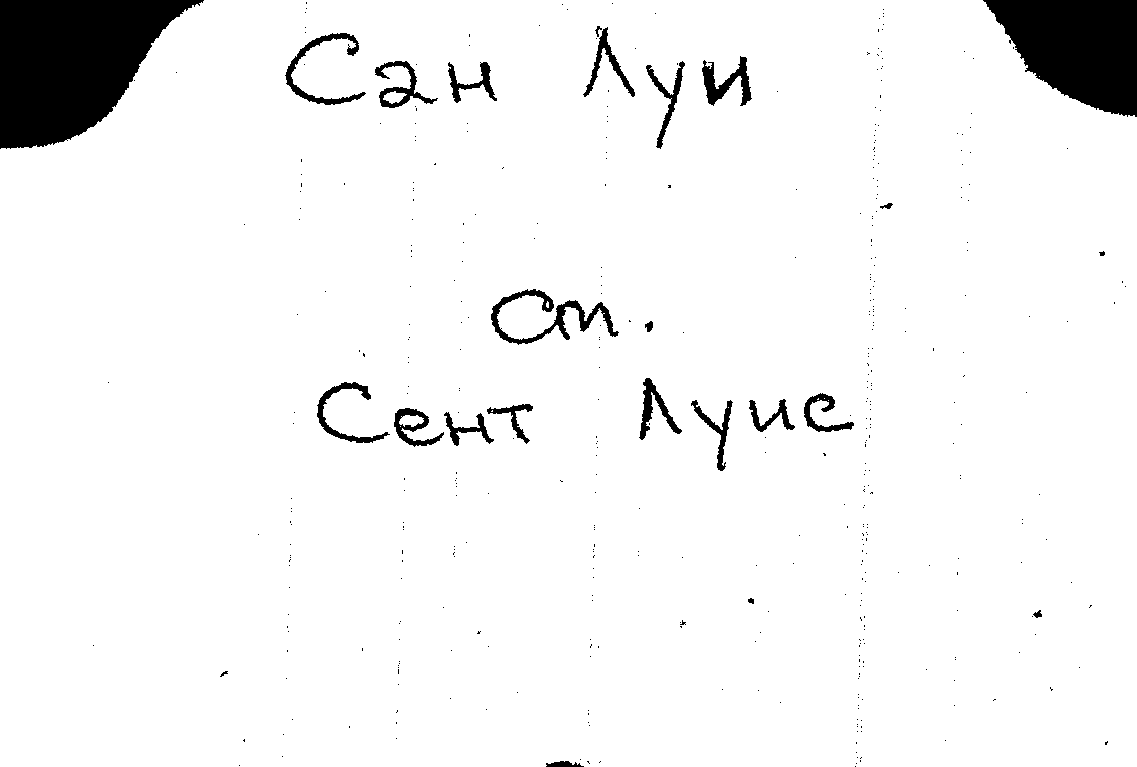 Сан Луи
ст.
Сент Луис